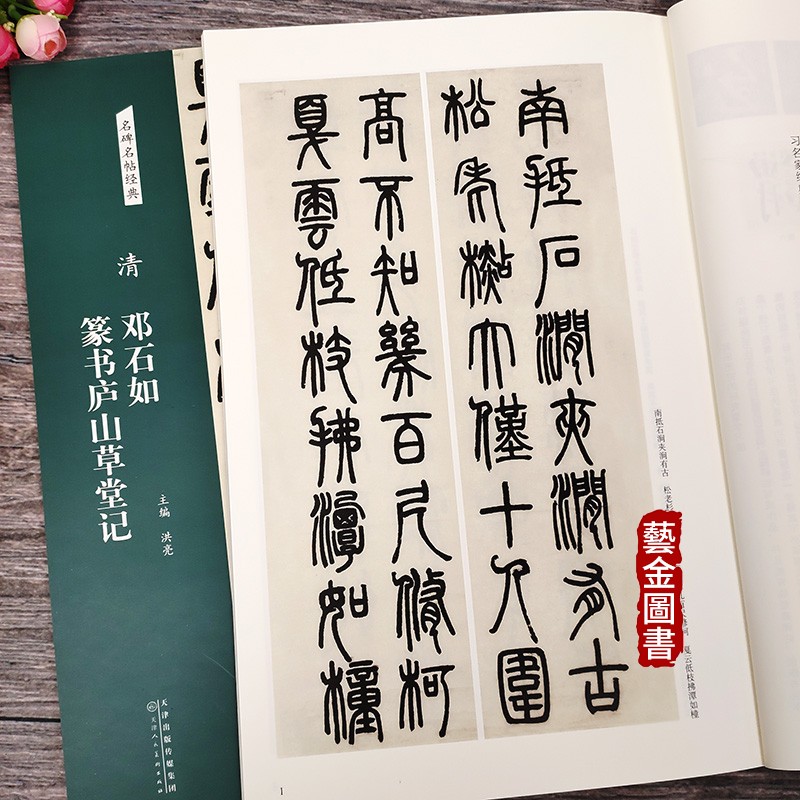 名碑名帖经典
清
邓石如
篆书庐山草堂记
主编 洪亮
天津出版传媒集团
天津人民美术出版社
南抵石澗夾澗有古
松老杉大僅十人圍
高不知幾百尺修柯
戛雲低枝拂潭如橦
南抵石涧夹涧有古 松老杉
戛云低枝拂潭如橦
习名家
藝金圖書
1